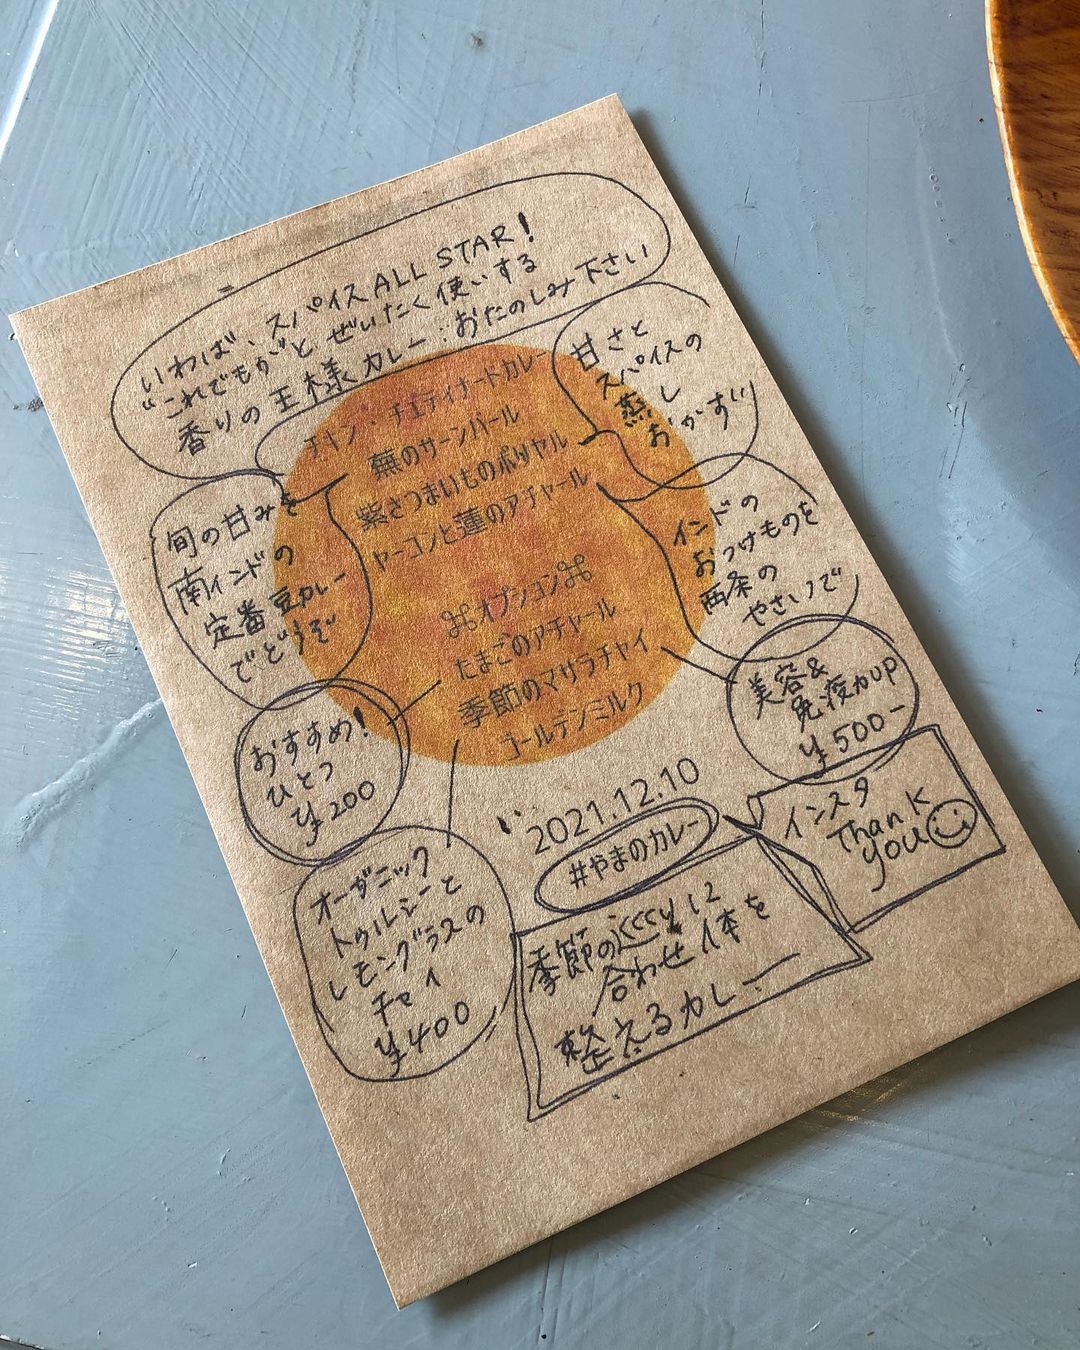 いわば、スパイスALL STAR!
"これでもか"と ぜいたく使いする
香りの王様カレー:おたのしみ下さい
チキン・チェティナードカレー
蕪のサーンバール
紫さつまいものポリヤル
ヤーコンと蓮のアチャール
⌘オプション⌘
たまごのアチャール
季節のマサラチャイ
ゴールデンミルク
甘さと
スパイスの
蒸し
おかず
インドの
おつけものを
西条の
やさいで
旬の甘みを
南インドの
定番豆カレー
でどうぞ
おすすめ!
ひとつ
¥200
美容&
免疫力UP
¥500-
オーガニック
トゥルシーと
レモングラスの
チャイ
¥400
2021.12.10
#やまのカレー
インスタ
Thank
you
季節の巡りに
合わせ体を
整えるカレー